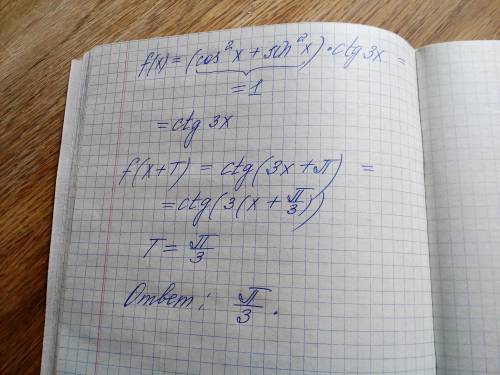 f(x) = (cos²x + sin²x) · ctg 3x =
= 1
= ctg 3x
f(x+T) = ctg(3x+π) =
= ctg(3(x + π/3))
T = π/3
Ответ: π/3.